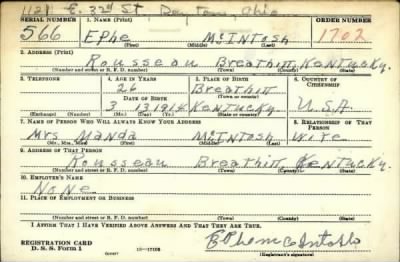 1121 E. 3rd St Daytona, Ohio
SERIAL NUMBER 1. NAME (Print) ORDER NUMBER
566 EPhe McIntosh 1702
(First) (Middle) (Last)
2. ADDRESS (Print)
Rousseau Breathitt Kentucky.
(Number and street or R. F. D. number) (Town) (County) (State)
3. TELEPHONE 4. AGE IN YEARS 5. PLACE OF BIRTH 6. COUNTRY OF CITIZENSHIP
26 Breathitt
(Town or county)
DATE OF BIRTH
3 13 1914 Kentucky U.S.A.
(Exchange) (Number) (Mo.) (Day) (Yr.) (State or country)
7. NAME OF PERSON WHO WILL ALWAYS KNOW YOUR ADDRESS 8. RELATIONSHIP OF THAT PERSON
Mrs Manda McIntosh Wife
(Mr., Mrs., Miss) (First) (Middle) (Last)
9. ADDRESS OF THAT PERSON
Rousseau Breathitt Kentucky.
(Number and street or R. F. D. number) (Town) (County) (State)
10. EMPLOYER'S NAME
None
11. PLACE OF EMPLOYMENT OR BUSINESS
(Number and street or R. F. D. number) (Town) (County) (State)
I AFFIRM THAT I HAVE VERIFIED ABOVE ANSWERS AND THAT THEY ARE TRUE.
REGISTRATION CARD
D. S. S. Form 1 16-17105
(Registrant's signature)